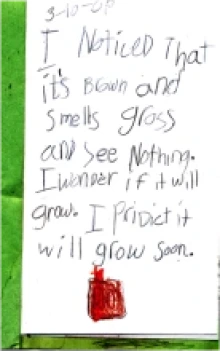 3-10-08
I Noticed That
it's Brown and
smells gross
and see Nothing.
I wonder if it will
grow. I Pridict it
will grow soon.